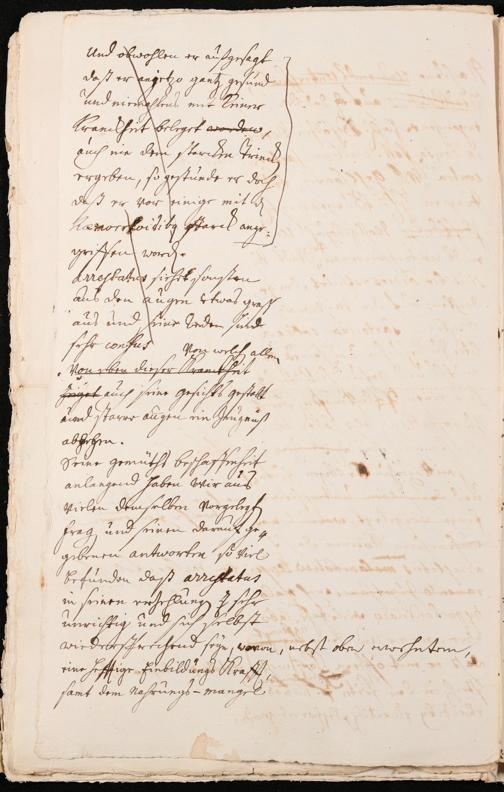 Und obwohlen er außgesagt
daß er anjetzo gantz gesund
und niemahlens mit keiner
Kranckheit beleget worden,
auch nie dem starcken Trinck
ergeben, so gestunde er doch
daß er vor einige mit
Hæmorrhoidibus starck ange-
griffen worden
Arrestatus siehet sonsten
aus den augen etwas graß
aus und seine reden sind
sehr confus Von welch allem
Von oben dieser Kranckheit
zeiget auch seine gesichts gestalt
und starre augen ein Zeugniß
abgeben.
Seine gemüths beschaffenheit
anlangend haben wir aus
vielen demselben vorgelegt
frag und seinen darauf ge-
gebenen antworten so viel
befunden daß arrestatus
in seinen erzehlungen sehr
unrichtig und sich selbst
wiedersprechend seye, wovon, nebst oben erwehntem,
eine hefftige Einbildungs Krafft,
samt dem Nahrungs-mangel